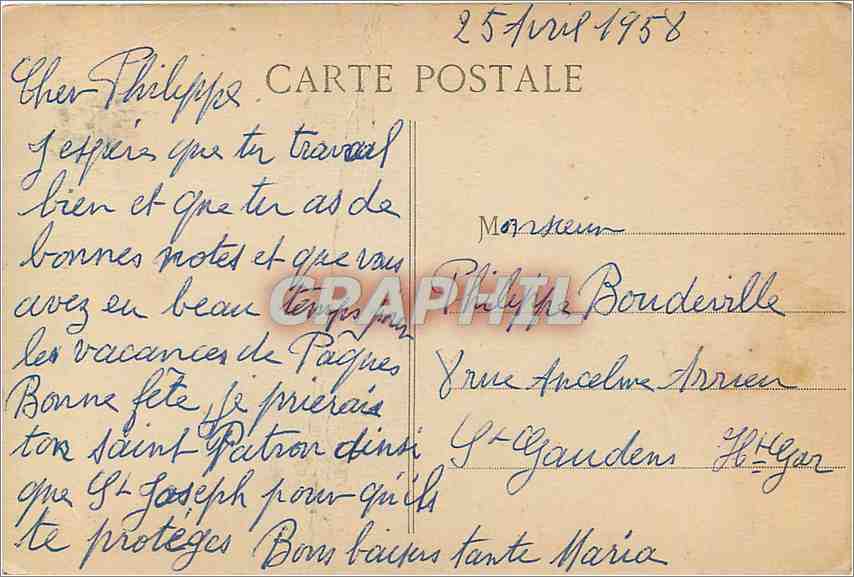 25 Avril 1958
CARTE POSTALE
Cher Philippe
J espére que tu travaal
bien et que tu as de
bonnes notes et que vous
avez eu beau temps pour
les vacances de Pâques
Bonne fête, je prierais
ton saint Patron ainsi
que St Joseph pour qu'ils
te protéges Bons baisers tante Maria
Monsieur
Philippe Boudeville
8 rue Ancelme Arrieu
St Gaudens Hte Gar
GRAPHIL